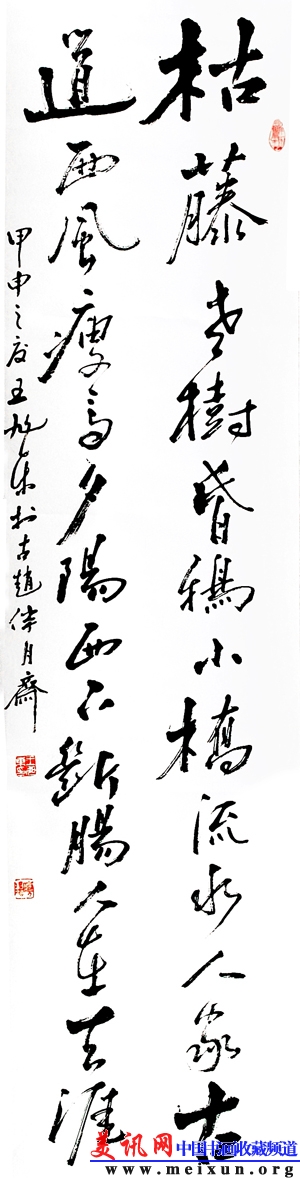 枯藤老樹昏鴉小橋流水人家古
道西風瘦馬夕陽西下斷腸人在天涯
甲申之夏王旭東於古趙伴月齋
美讯网 中国书画收藏频道
www.meixun.org